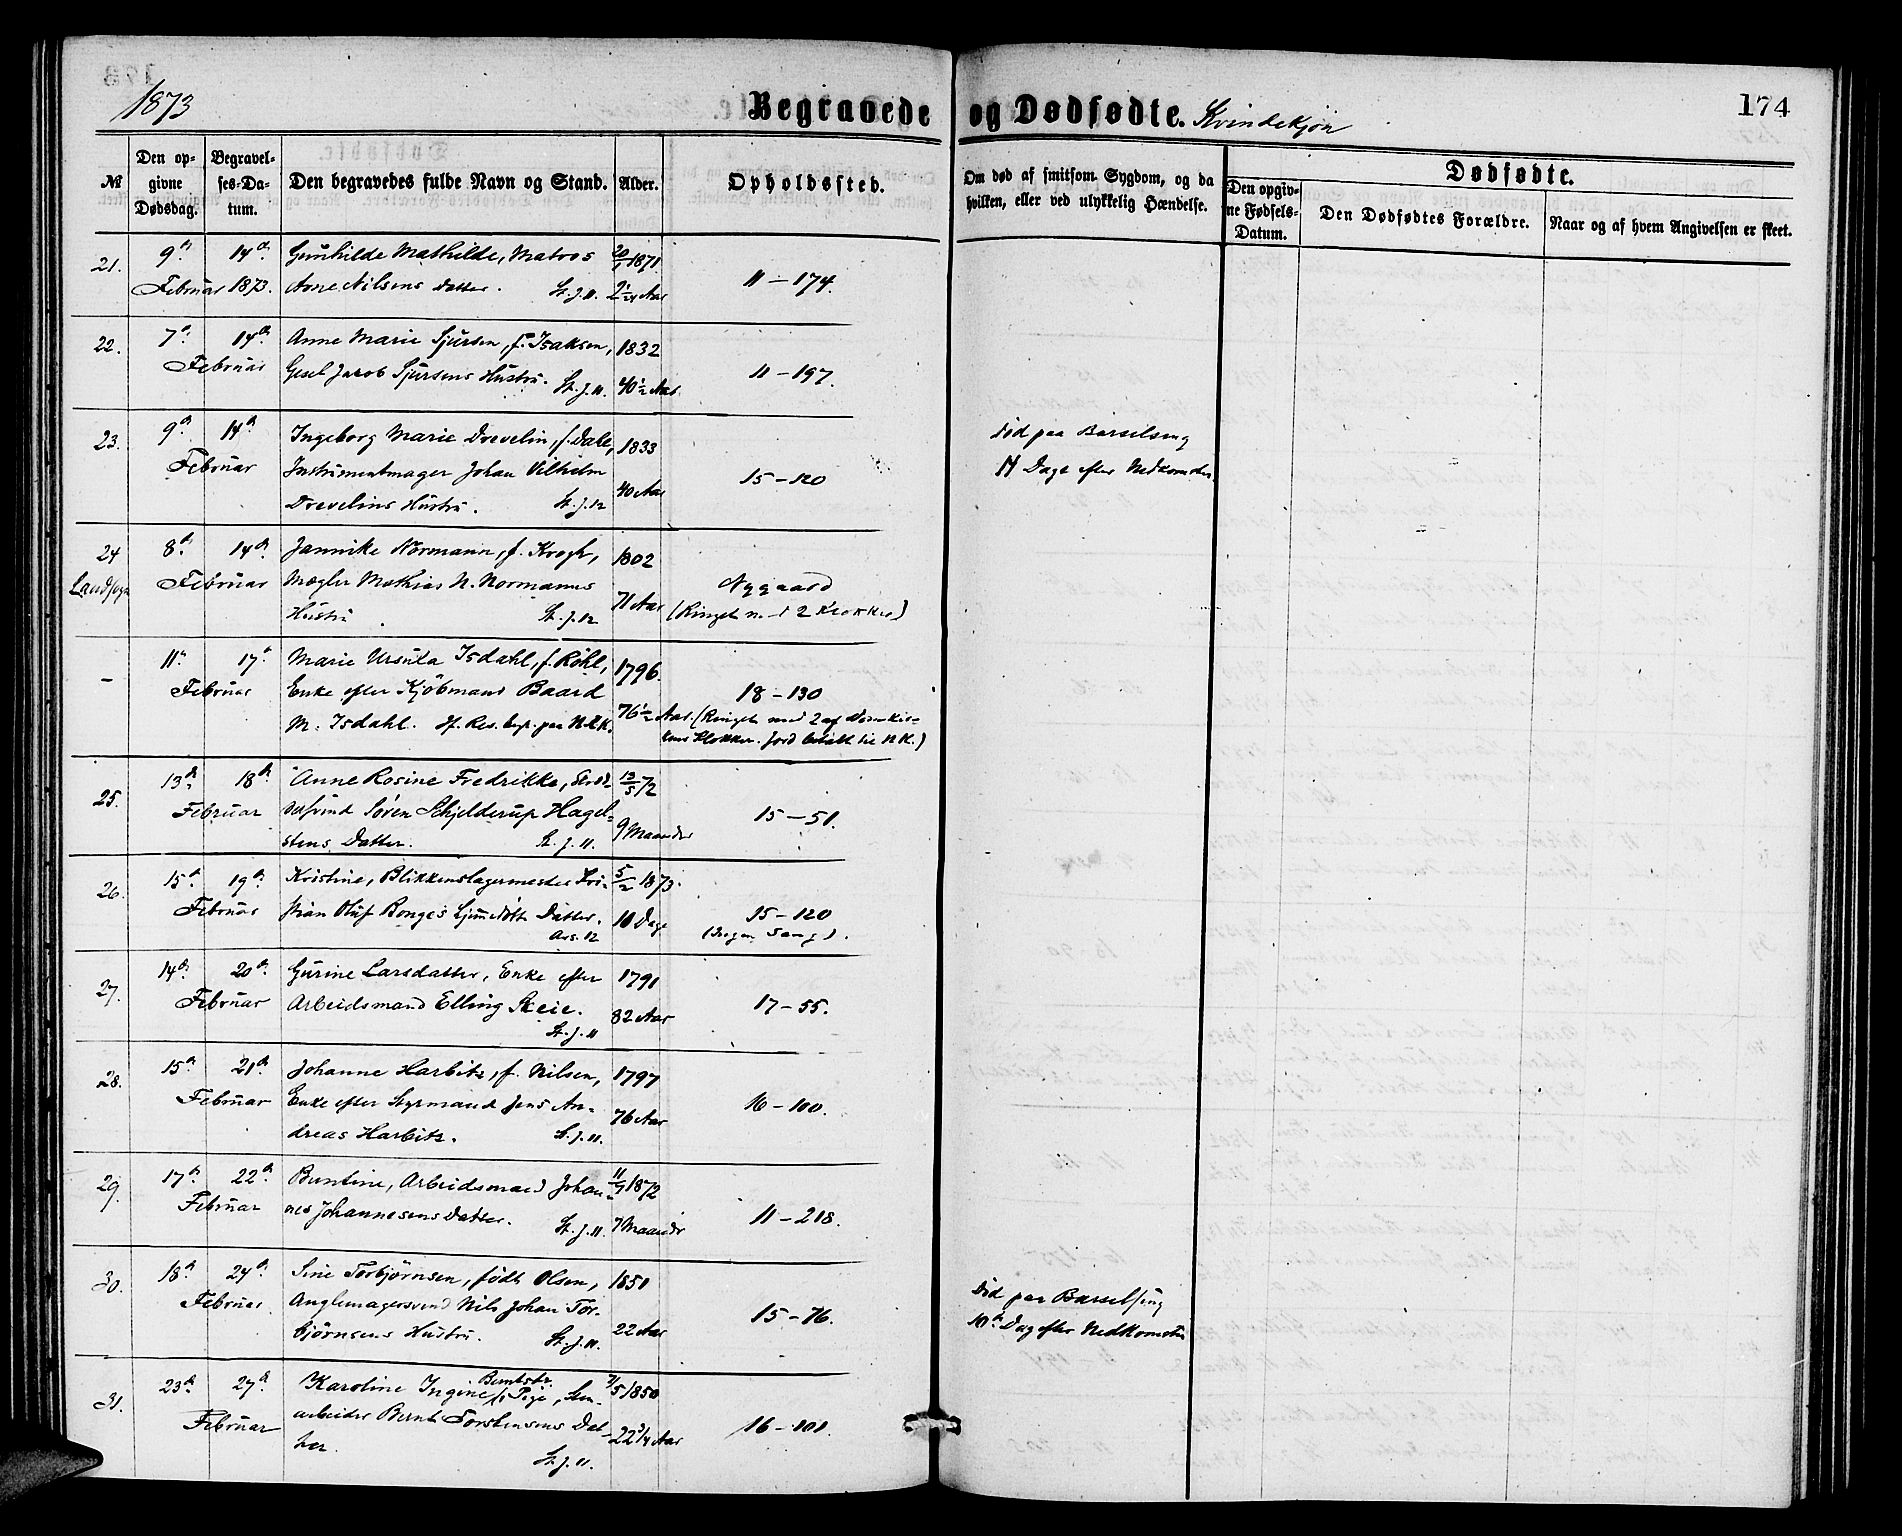 1873
Begravede og Dødfødte. Kvindekjøn
174
№
Den opgivne Dødsdag.
Begravelses-Datum.
Den begravedes fulde Navn og Stand.
Alder.
Opholdssted.
Om død af smitsom Sygdom, og da hvilken, eller ved ulykkelig Hændelse.
Dødfødte.
Den opgivne Fødsels-Datum.
Den Dødfødtes Forældre.
Naar og af hvem Angivelsen er skeet.
21. 9de 14de Gunhilde Mathilde, Matros 20/1 1871
Februar 1873. Arne Nilsens Datter. St. J. 11. 2 1/24 Aar 11–174.
22. 7de 14de Anne Marie Sjursen, f. Isaksen, 1832
Februar Gesel Jacob Sjursens Hustru. St. J. 11. 40 1/2 Aar. 11–197.
23. 9de 14de Ingeborg Marie Drevelin, f. Dahl, 1833 Død paa Barselseng
Februar Instrumentmager Johan Vilhelm 40 Aar 15–120 14 Dage efter Nedkomsten.
Drevelins Hustru. St. J. 12
24 8de 14de Jannike Normann, f. Krogh, 1802
Landsogn Februar Mægler Mathias N. Normanns 71 Aar Nygaard
Hustru St. J. 12 (Ringet m. d 2 Klokker)
– 11te 17de Marie Ursula Isdahl, f. Röhl, 1796.
Februar Enke efter Kjöbmand Baard 18–130
M. Isdahl. paa N.K.K. 76 1/2 Aar. (Ringet med 2 af Domkir-
kens Klokker. Jord betalt til N.K.)
25. 13de 18de Anne Rosine Fredrikke, 13/5 72
Februar Søren Schjelderup Hagel- 15–51.
stens Datter. St. J. 11. 9 Maaneder
26. 15de 19de Kristine, Blikkenslagermester Kri- 5/2 1873.
Februar stian Oluf Ronges hjemmedøbt Datter. 10 Dage 15–120
Ass. 12 (Ingen Sang).
27. 14de 20de Gurine Larsdatter, Enke efter 1791
Februar Arbeidsmand Elling Skeie. 82 Aar 17–55.
St. J. 11
28. 15de 21de Johanne Harbitz, f. Nilsen, 1797
Februar Enke efter Styrmand Jens An- 76 Aar 16–100.
dreas Harbitz. St. J. 11.
29. 17de 22de Berntine, Arbeidsmand Johan- 11/7 1872
Februar nes Johannesens Datter. St. J. 11. 7 Maaneder 11–218.
30. 18de 24de Sine Torbjörnsen, født Olsen, 1850 Død paa Barselseng
Februar Nils Johan Tor- 15–76. 10de Dag efter Nedkomsten
björnsens Hustru. St. J. 11. 22 Aar
31. 23de 27de Karoline Ingine Berntsdtr Pige, Sten- 3/5 1850
Februar arbeider Bernt Torstensens Dat- 22 3/4 Aar 16–101.
ter. St. J. 11.